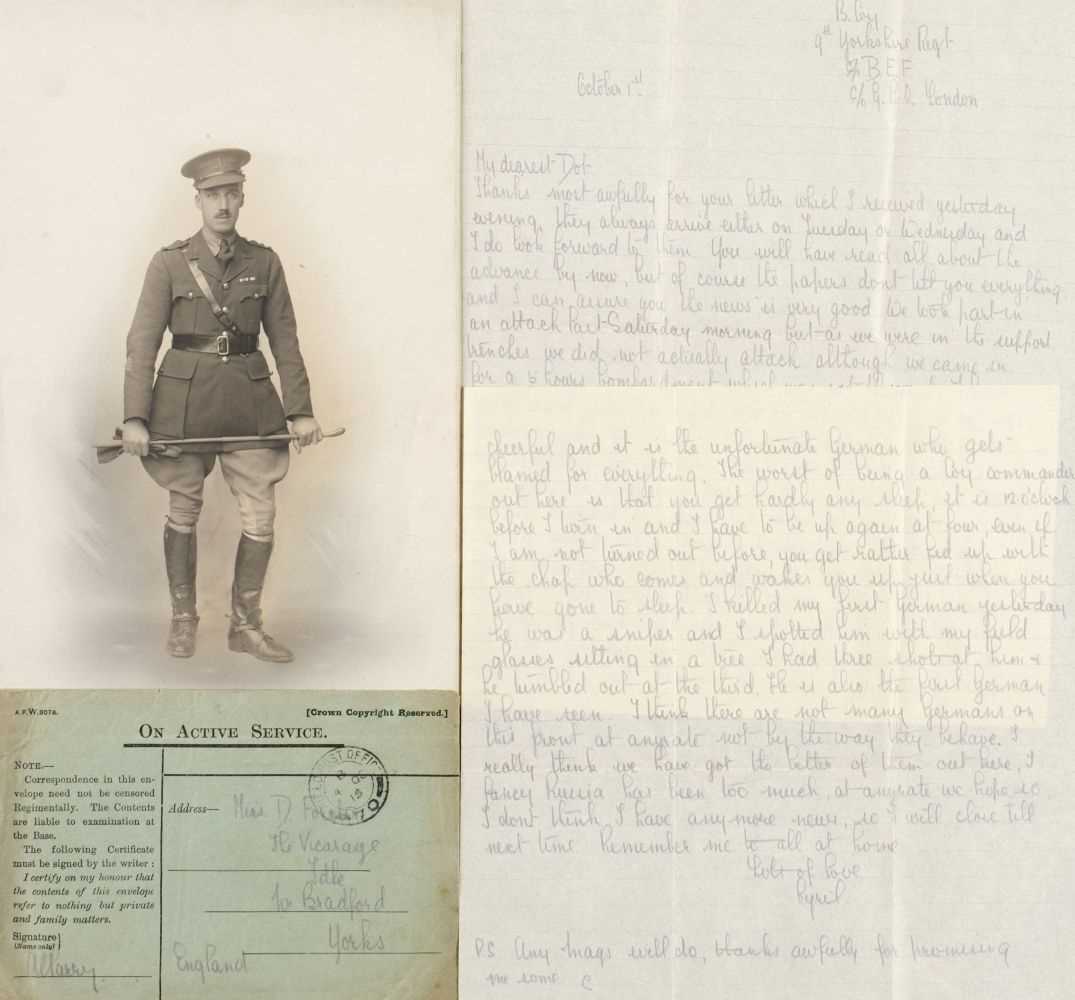 B. Coy
9th Yorkshire Regt
B E F
c/o G.P.O. London
October 1st
My dearest Dot
Thanks most awfully for your letter which I received yesterday
evening, they always arrive either on Tuesday or Wednesday and
I do look forward to them. You will have read all about the
advance by now, but of course the papers dont tell you everything
and I can assure you the news is very good. We took part in
an attack last Saturday morning but as we were in the support
trenches we did not actually attack although we came in
for a 5 hours bombardment which
cheerful and it is the unfortunate German who gets
blamed for everything. The worst of being a Coy commander
out here is that you get hardly any sleep, it is 12 o'clock
before I turn in and I have to be up again at four, even if
I am not turned out before, you get rather fed up with
the chap who comes and wakes you up just when you
have gone to sleep. I killed my first German yesterday
he was a sniper and I spotted him with my field
glasses sitting in a tree I had three shots at him &
he tumbled out at the third. He is also the first German
I have seen. I think there are not many Germans on
this front at anyrate not by the way they behave. I
really think we have got the better of them out here, I
fancy Russia has been too much, at anyrate we hope so.
I dont think I have any more news, so I will close till
next time. Remember me to all at home
Lots of love
Cyril
P.S Any mags will do, thanks awfully for promising
me some C
A.F.W.3078.
[Crown Copyright Reserved.]
ON ACTIVE SERVICE.
NOTE.—
Correspondence in this en-
velope need not be censored
Regimentally. The Contents
are liable to examination at
the Base.
The following Certificate
must be signed by the writer:
I certify on my honour that
the contents of this envelope
refer to nothing but private
and family matters.
Signature
(Name only)
Address—
Miss D.
The Vicarage
Idle
Nr Bradford
Yorks
England
POST OFFICE